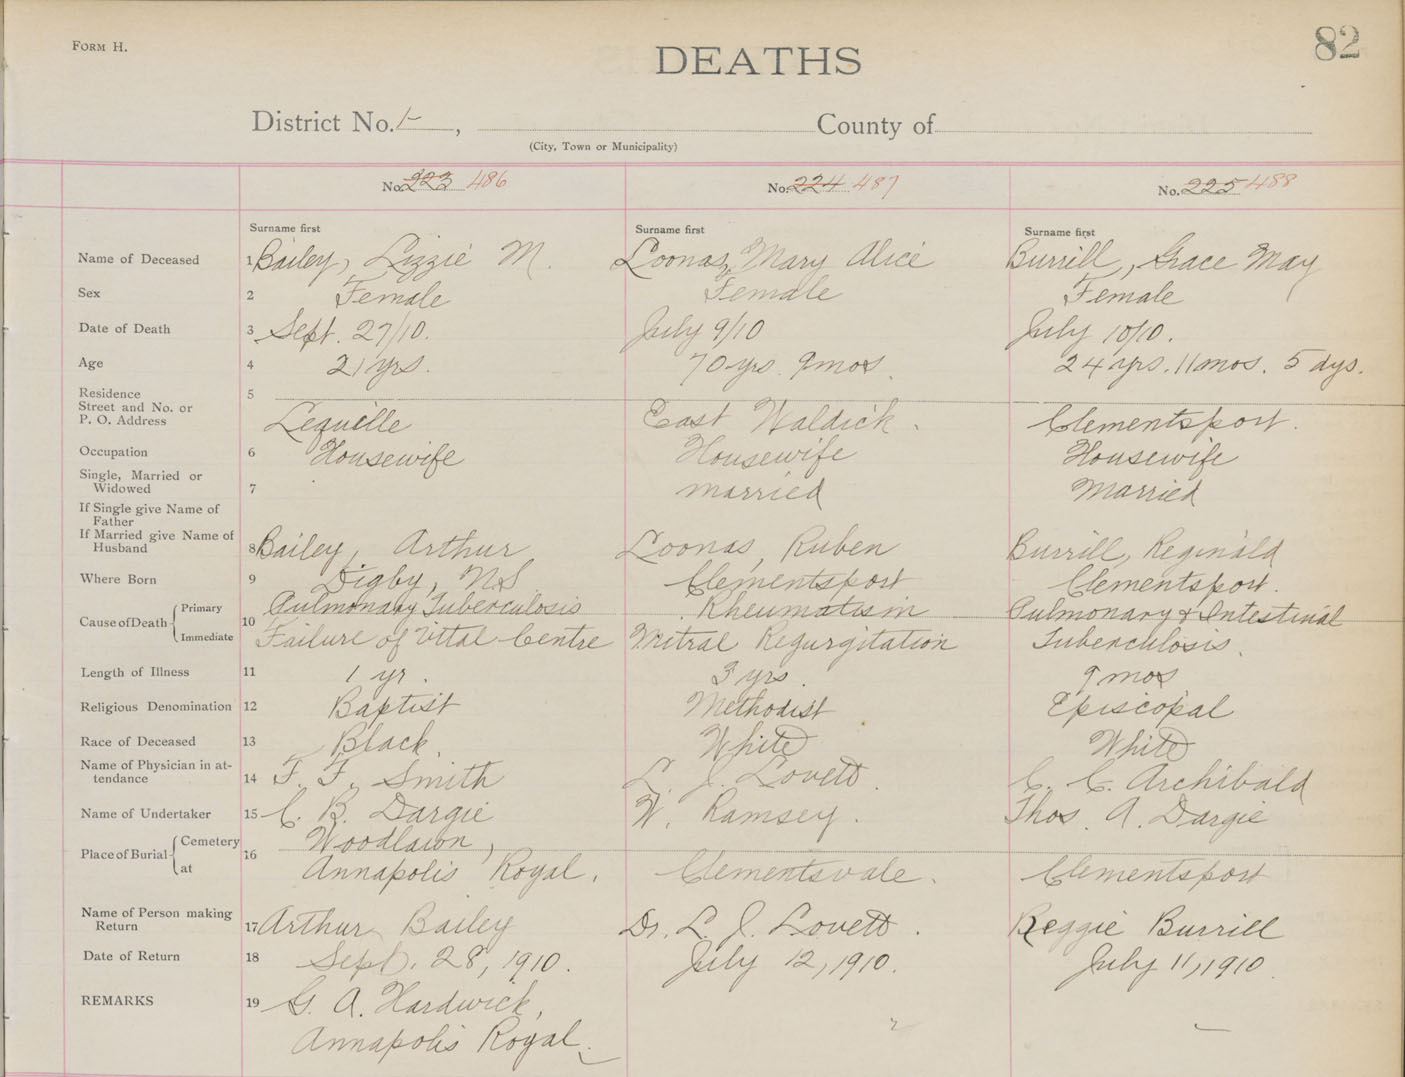 FORM H.
DEATHS
82
District No. 1- , County of
(City, Town or Municipality)
No. 223 486 No. 224 487 No. 225 488
Surname first Surname first Surname first
Name of Deceased 1 Bailey, Lizzie M. Loonas, Mary Alice Burrill, Grace May
Sex 2 Female Female Female
Date of Death 3 Sept. 27/10. July 9/10 July 10/10.
Age 4 21 yrs. 70 yrs. 9 mos. 24 yrs. 11 mos. 5 dys.
Residence 5
Street and No. or
P. O. Address Lequille East Waldick. Clementsport.
Occupation 6 Housewife Housewife Housewife
Single, Married or
Widowed 7 married Married
If Single give Name of
Father
If Married give Name of
Husband 8 Bailey, Arthur Loonas, Ruben Burrill, Reginald
Where Born 9 Digby, N.S Clementsport Clementsport.
Cause of Death Primary 10 Pulmonary Tuberculosis Rheumatism Pulmonary & Intestinal
Immediate Failure of Vital Centre Mitral Regurgitation Tuberculosis.
Length of Illness 11 1 yr. 3 yrs. 9 mos
Religious Denomination 12 Baptist Methodist Episcopal
Race of Deceased 13 Black. White White
Name of Physician in at-
tendance 14 F. F. Smith L. J. Lovett. C. C. Archibald
Name of Undertaker 15 C. B. Dargie W. Ramsey. Thos. A. Dargie
Place of Burial Cemetery 16 Woodlawn,
at Annapolis Royal. Clementsvale. Clementsport
Name of Person making
Return 17 Arthur Bailey Dr. L. J. Lovett. Reggie Burrill
Date of Return 18 Sept. 28, 1910. July 12, 1910. July 11, 1910.
REMARKS 19 G. A. Hardwick,
Annapolis Royal.